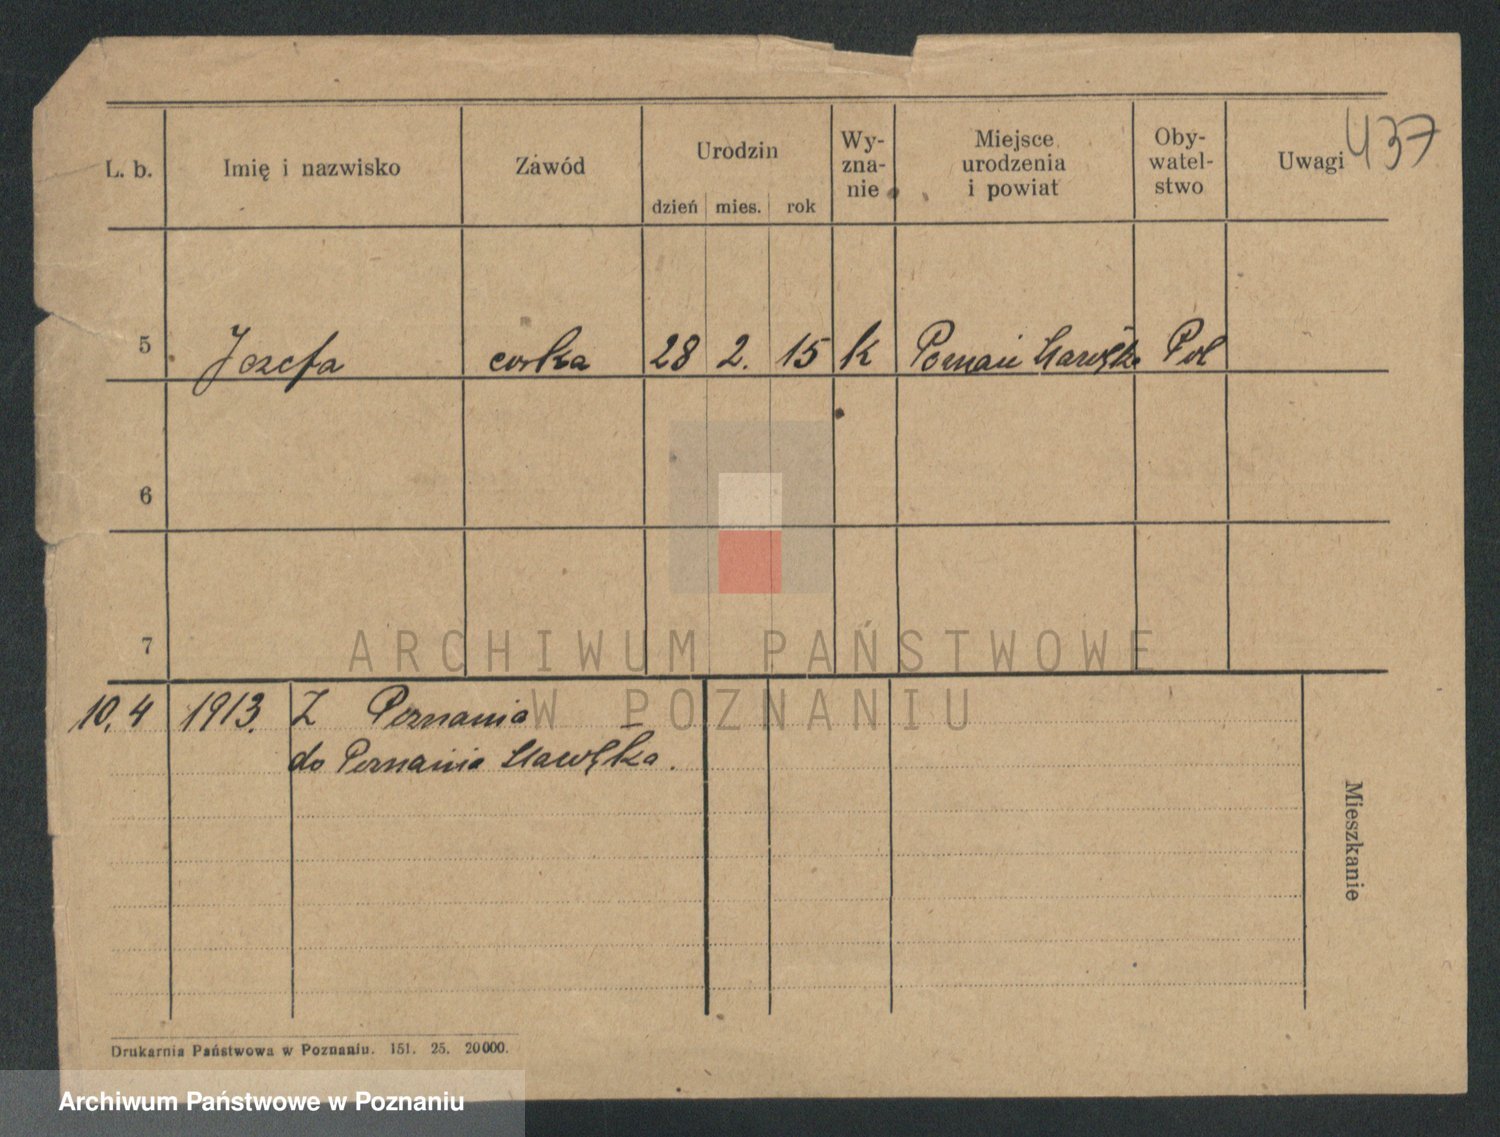 437
L. b. Imię i nazwisko Zawód Urodzin Wy-zna-nie Miejsce urodzenia i powiat Oby-watel-stwo Uwagi
dzień mies. rok
5 Jozefa corka 28 2. 15 k Poznań Pol
6
7
ARCHIWUM PAŃSTWOWE
W POZNANIU
10. 4 1913. Z Poznania
do Poznania
Mieszkanie
Drukarnia Państwowa w Poznaniu. 151. 25. 20000.
Archiwum Państwowe w Poznaniu